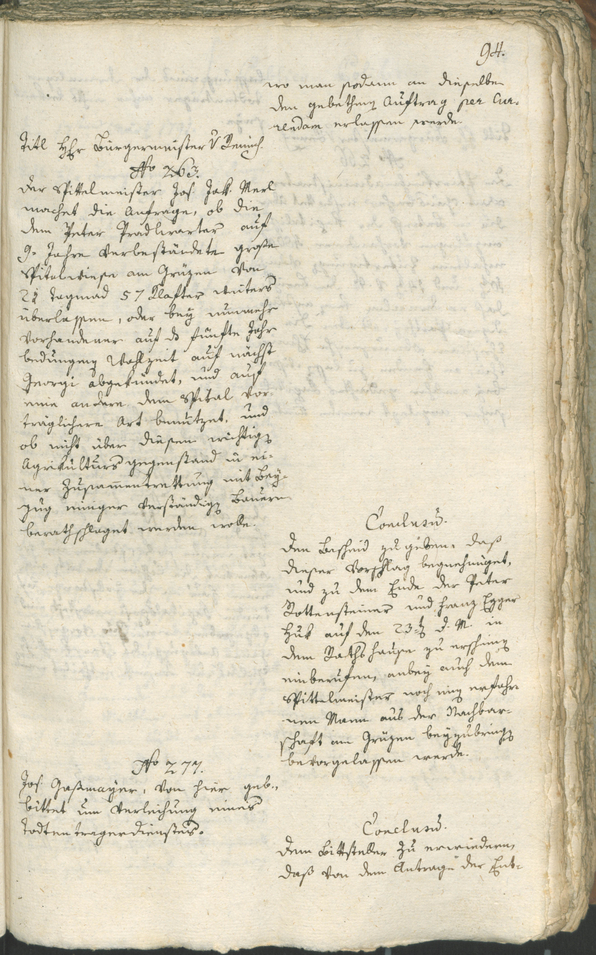 94.
wo man sodann an dieselbe
den gebethenen Auftrag per Cur-
rendam erlassen werde.
Titl Hr Bürgermeister v
No 263.
Der Spittelmeister Jos. Jak. Merl
machet die Anfrage, ob die
dem Peter Pradlwarter auf
9. Jahre verbeständete große
Spitalwiese am Grüzen von
21 Tagmad 57 Klafter weiters
überlassen, oder bey nunmehr
vorhandener auf d fünfte Jahr
bedungenen Wahlzeit auf nächst
Georgi abgekündet, und auf
eine andere dem Spital vor-
träglichere Art benützet, und
ob nicht über diesen wichtigen
Agrikultursgegenstand in ei-
ner Zusammentrettung mit Bey-
zug einiger verständigen Bauern
berathschlaget werden wolle.
Conclusum.
Den Bescheid zu geben, daß
dieser Vorschlag begnehmiget,
und zu dem Ende der Peter
Rottensteiner und Franz Egger
Huk auf den 23ten d. M. in
dem Rathshause zu erscheinen
einberufen, anbey auch dem
Spittelmeister noch einen erfahr-
nen Mann aus der Nachbar-
schaft am Grüzen beyzubringen
bevorgelassen werde.
No 277.
Jos. Gaßmayer, von hier geb.,
bittet um Verleihung eines
Todtentragerdienstes.
Conclusum.
Dem Bittsteller zu erwiedern,
daß von dem Antrage der Ent-